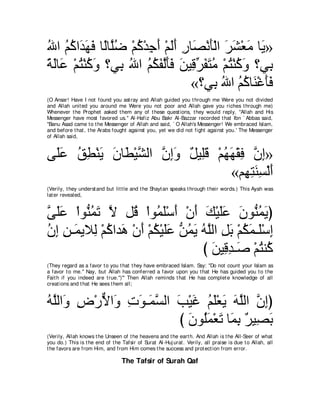 «يَا مَعْشَرَ الْأَنْصَارِ أَلَمْ أَجِدْكُمْ ضُلَّالًا فَهَدَاكُمُ اللهُ
بِي؟ وَكُنْتُمْ مُتَفَرِّقِينَ فَأَلَّفَكُمُ اللهُ بِي؟ وَكُنْتُمْ عَالَةً
فَأَغْنَاكُمُ اللهُ بِي؟»
(O Ansar! Have I not found you astray and Allah guided you through me Were you not divided
and Allah united you around me Were you not poor and Allah gave you riches through me)
Whenever the Prophet asked them any of these questions, they would reply, "Allah and His
Messenger have most favored us.'' Al-Hafiz Abu Bakr Al-Bazzar recorded that Ibn `Abbas said,
"Banu Asad came to the Messenger of Allah and said, `O Allah's Messenger! We embraced Islam,
and before that, the Arabs fought against you, yet we did not fight against you.' The Messenger
of Allah said,
«إِنَّ فِقْهَهُمْ قَلِيلٌ وَإِنَّ الشَّيْطَانَ يَنْطِقُ عَلَى
أَلْسِنَتِهِم»
(Verily, they understand but little and the Shaytan speaks through their words.) This Ayah was
later revealed,
(يَمُنُّونَ عَلَيْكَ أَنْ أَسْلَمُوا قُل لاَّ تَمُنُّوا عَلَىَّ
إِسْلَـمَكُمْ بَلِ اللَّهُ يَمُنُّ عَلَيْكُمْ أَنْ هَدَاكُمْ لِلايمَـنِ إِنُ
كُنْتُمْ صَـدِقِينَ )
(They regard as a favor to you that they have embraced Islam. Say: "Do not count your Islam as
a favor to me." Nay, but Allah has conferred a favor upon you that He has guided you to the
Faith if you indeed are true.")'' Then Allah reminds that He has complete knowledge of all
creations and that He sees them all;
(إِنَّ اللَّهَ يَعْلَمُ غَيْبَ السَّمَـوَتِ وَالاٌّرْضِ وَاللَّهُ
بَصِيرٌ بِمَا تَعْمَلُونَ )
(Verily, Allah knows the Unseen of the heavens and the earth. And Allah is the All-Seer of what
you do.) This is the end of the Tafsir of Surat Al-Hujurat. Verily, all praise is due to Allah, all
the favors are from Him, and from Him comes the success and protection from error.
The Tafsir of Surah Qaf